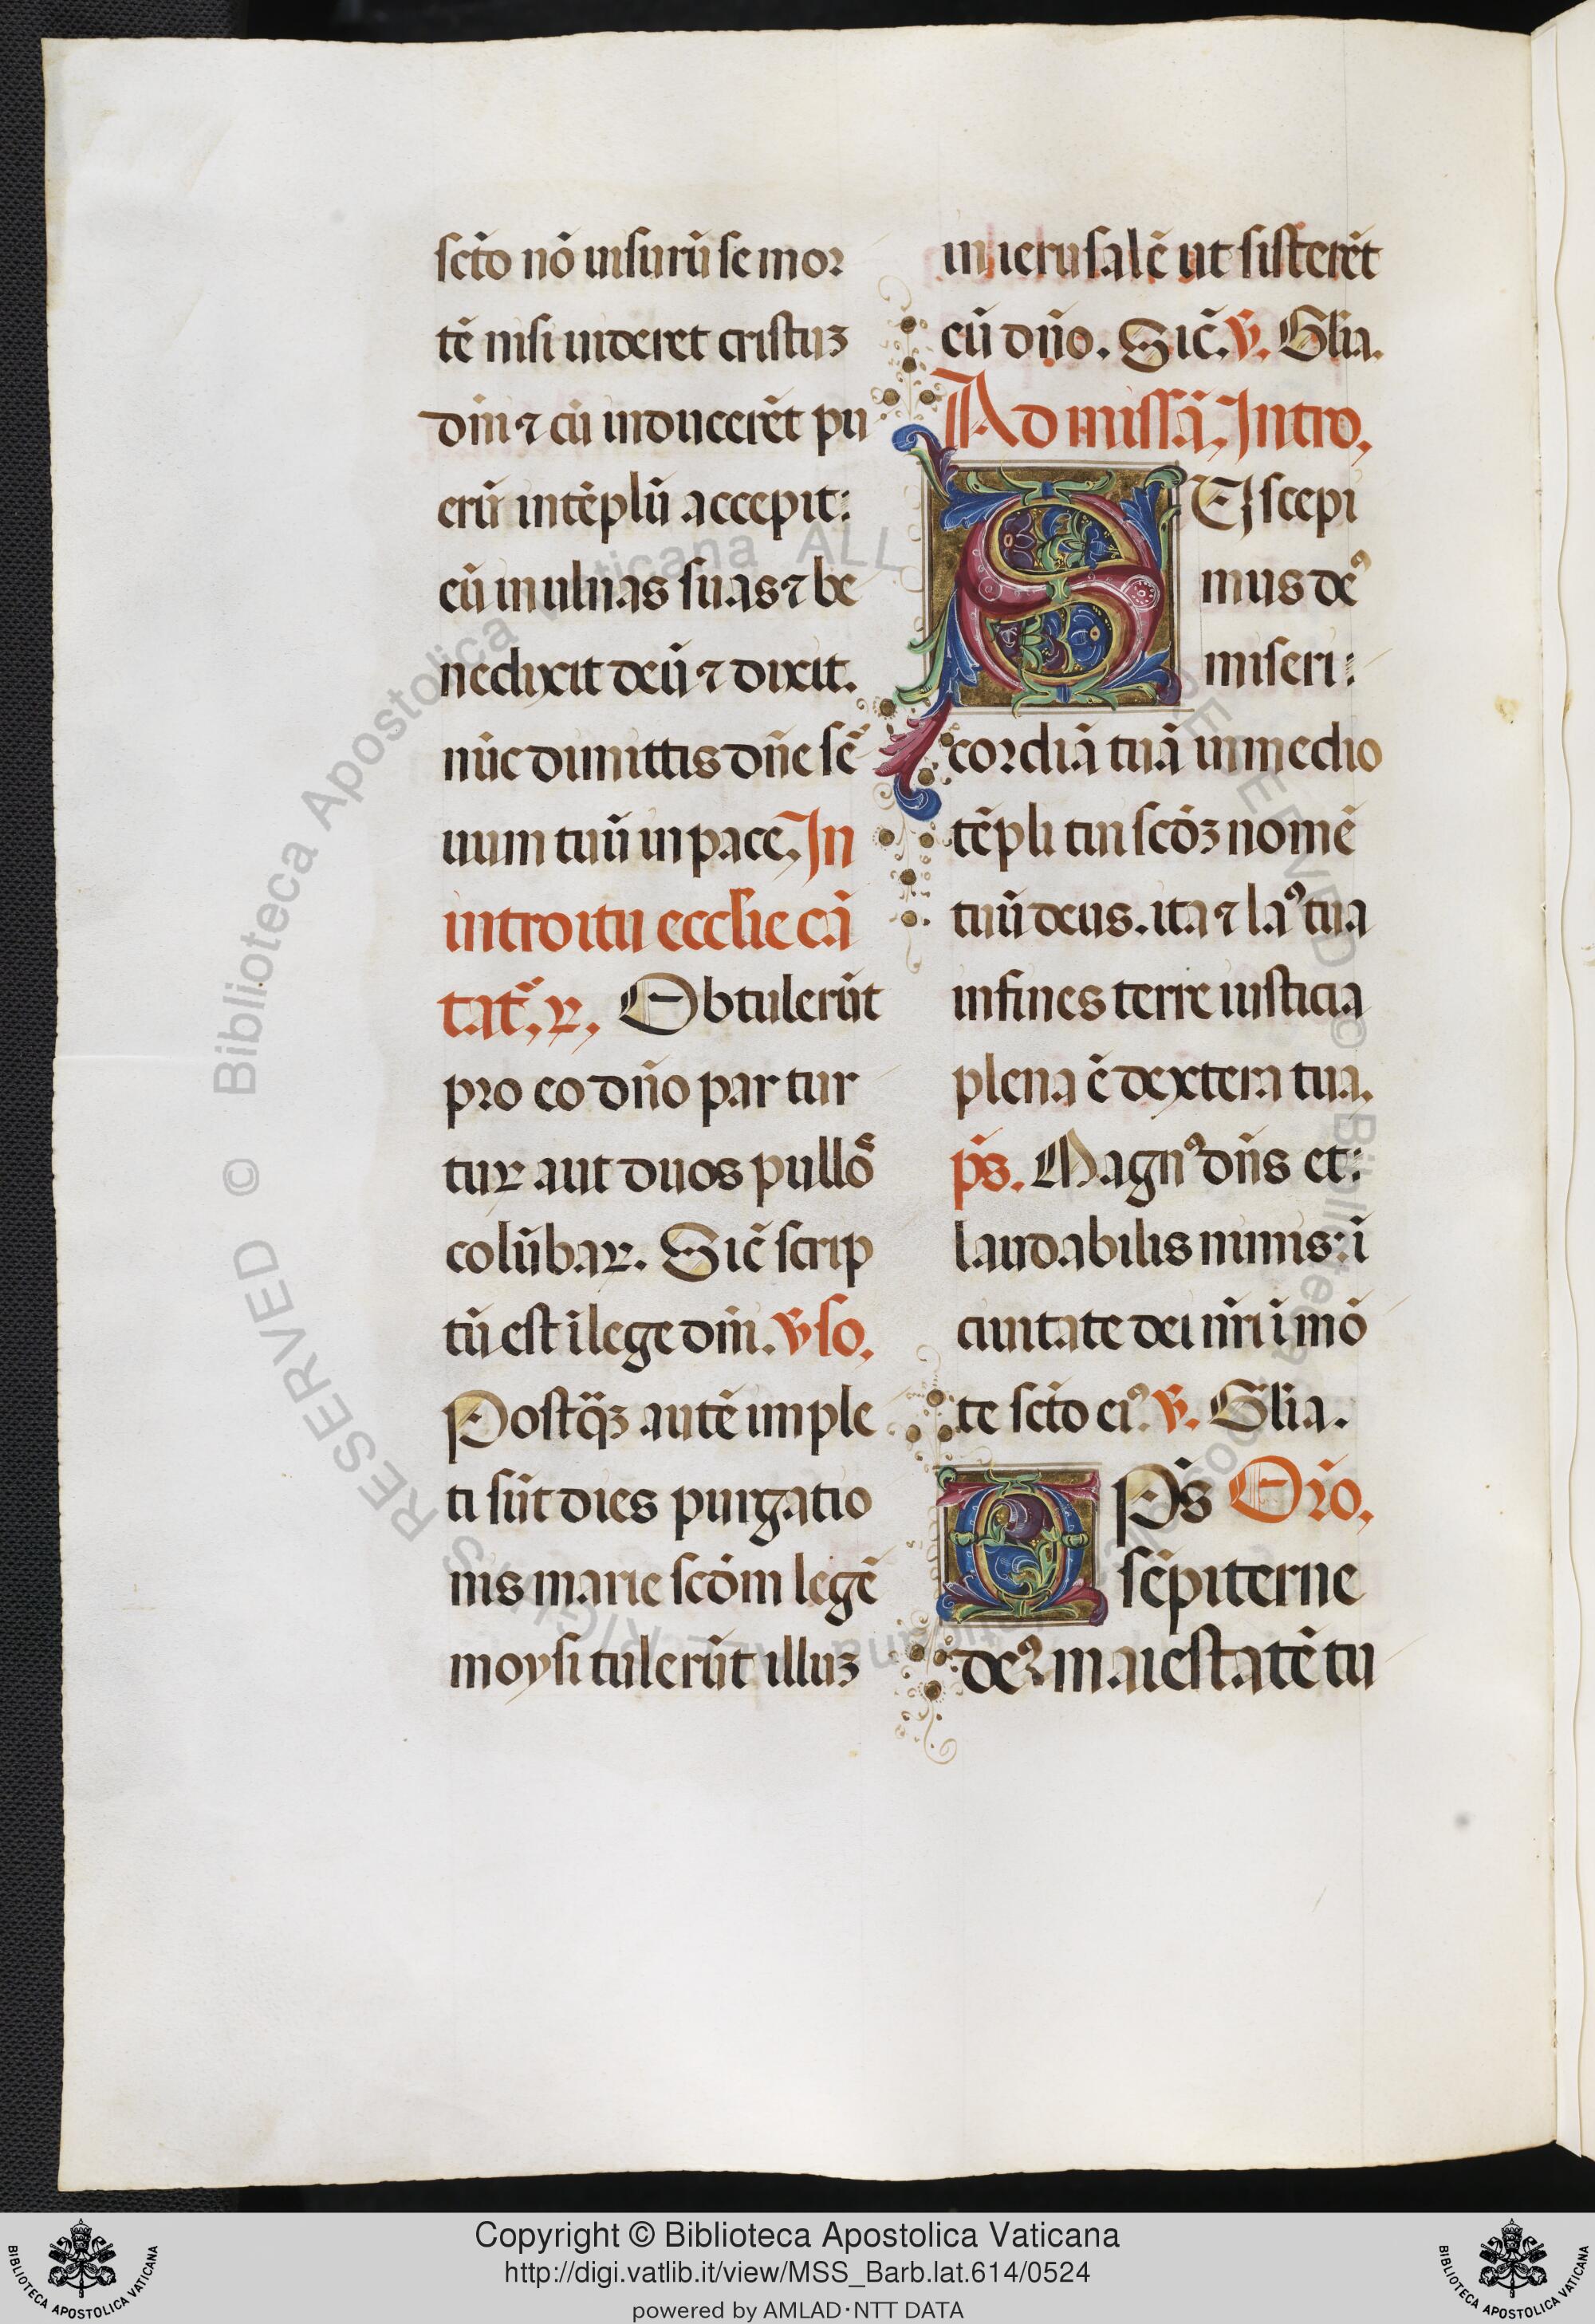 sc̄to nō uisurū se mor
tē nisi uideret cristuꝫ
dn̄i ⁊ cū inducerēt pu
erū in tēplū accepit:
eū in ulnas suas ⁊ be
nedixit deū ⁊ dixit.
nūc dimittis dn̄e sē
uum tuū in pace. In
introitu eccl̄ie cā
tat᷑. ꝶ. Obtulerūt
pro eo dn̄o par tur
tuꝝ aut duos pullō
colūbaꝝ. Sic̄ scrip
tū est ī lege dn̄i. ℣ so.
Postq̄ꝫ autē imple
ti sūt dies purgatio
nis marie scd̄m legē
moysi tulerūt illuꝫ
in ierusalē ut sisterēt
eū dn̄o. Sic̄. ℣. Gl̄ia.
Ad missā. Intro.
SEJscepi
mus deꝰ
miseri:
cordiā tuā in medio
tēpli tui scd̄ꝫ nomē
tuū deus. ita ⁊ laꝰ tua
in fines terre iusticia
plena ē dextera tua.
p̄s. Magnꝰ dn̄s et:
laudabilis nimis: ī
ciuitate dei nr̄i ī mō
te sc̄to eiꝰ. ℣. Gl̄ia.
OPs̄ Oro.
sēpiterne
deꝰ maiestatē tu
© Biblioteca Apostolica Vaticana ALL RIGHTS RESERVED © Biblioteca Apostolica Vaticana ALL RIGHTS RESERVED
Copyright © Biblioteca Apostolica Vaticana
http://digi.vatlib.it/view/MSS_Barb.lat.614/0524
powered by AMLAD·NTT DATA
BIBLIOTECA APOSTOLICA VATICANA
BIBLIOTECA APOSTOLICA VATICANA